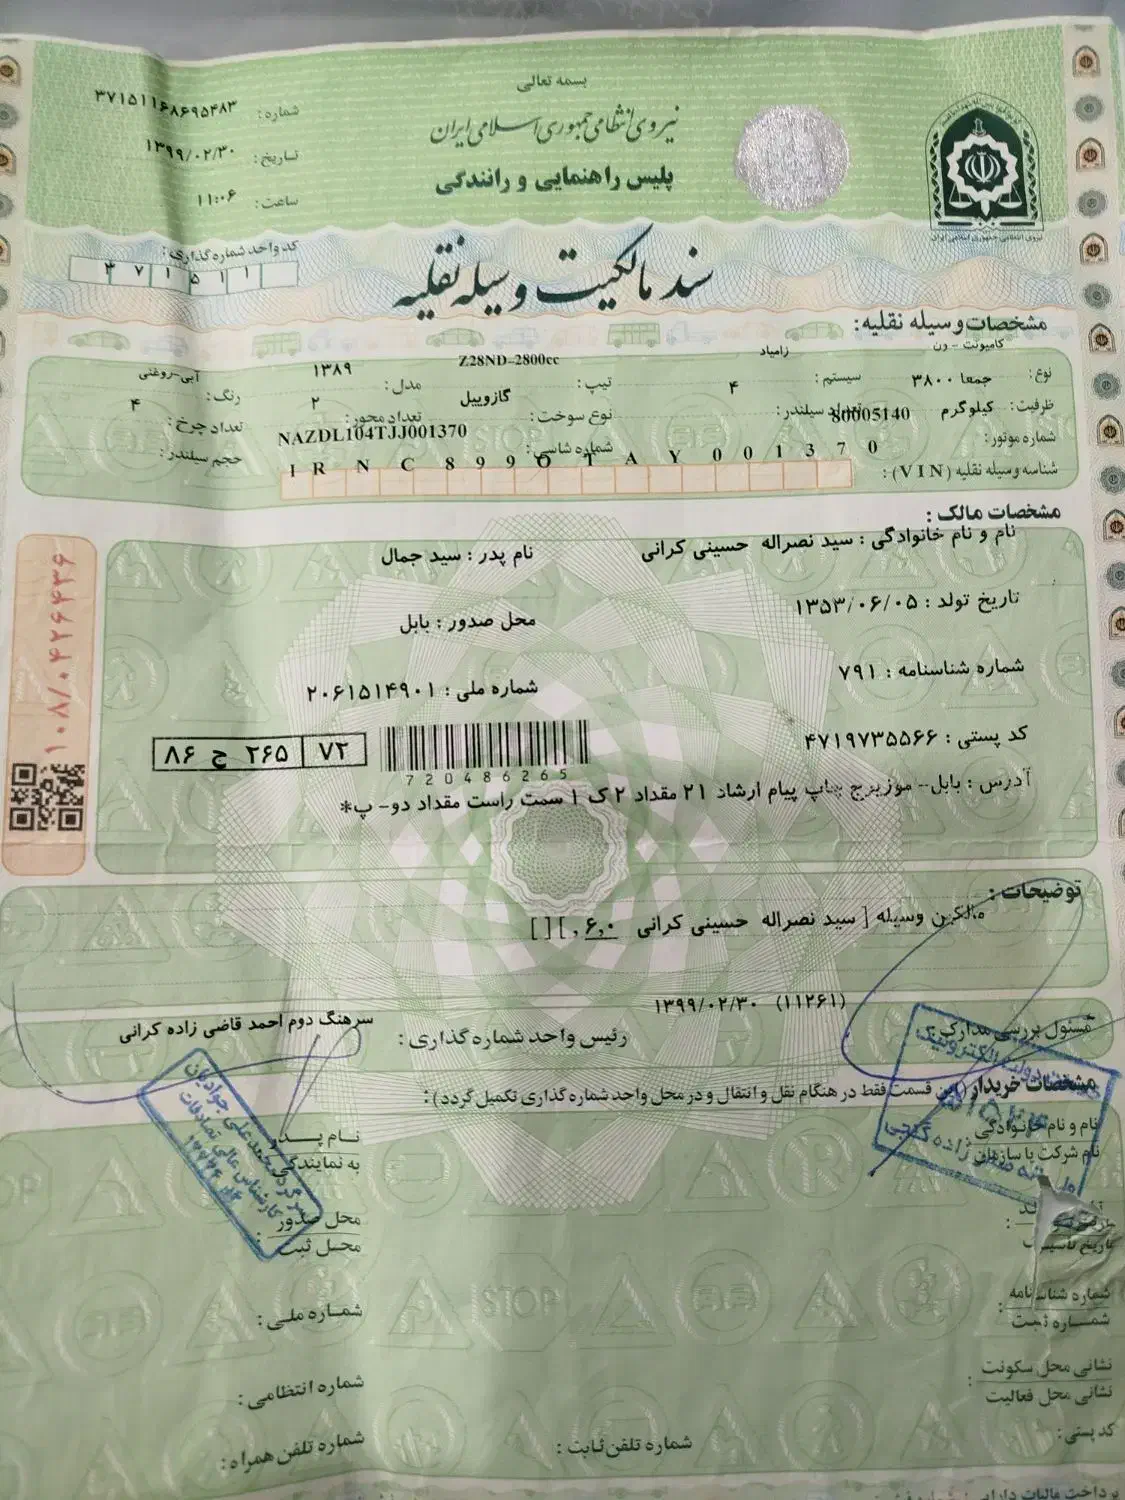 بسمه تعالی
نیروی انتظامی جمهوری اسلامی ایران
پلیس راهنمایی و رانندگی
شماره: ۳۷۱۵۱۱۶۸۶۹۵۴۸۳
تاریخ: ۱۳۹۹/۰۲/۳۰
ساعت: ۱۱:۰۶
نیروی انتظامی جمهوری اسلامی ایران
کد واحد شماره گذاری:
۳۷۱۵۱۱
سند مالکیت وسیله نقلیه
مشخصات وسیله نقلیه:
نوع: کامیونت - ون
سیستم: زامیاد
تیپ: Z28ND-2800cc
مدل: ۱۳۸۹
رنگ: آبی-روغنی
ظرفیت: جمعا ۳۸۰۰ کیلوگرم
تعداد سیلندر: ۴
نوع سوخت: گازوییل
تعداد محور: ۲
تعداد چرخ: ۴
شماره موتور: 80005140
شماره شاسی: NAZDL104TJJ001370
حجم سیلندر:
شناسه وسیله نقلیه (VIN): IRNC899OTAY001370
مشخصات مالک:
نام و نام خانوادگی: سید نصراله حسینی کرانی
نام پدر: سید جمال
تاریخ تولد: ۱۳۵۳/۰۶/۰۵
محل صدور: بابل
شماره شناسنامه: ۷۹۱
شماره ملی: ۲۰۶۱۵۱۴۹۰۱
کد پستی: ۴۷۱۹۷۳۵۵۶۶
720486265
۷۲ ۲۶۵ ج ۸۶
آدرس: بابل-- موزیرج چاپ پیام ارشاد ۲۱ مقداد ۲ ک ۱ سمت راست مقداد دو- پ*
۱۰۸/۰۴۲۶۴۳۶
توضیحات:
مالکین وسیله [ سید نصراله حسینی کرانی ۶,۰ ,][ ]
(۱۱۲۶۱) ۱۳۹۹/۰۲/۳۰
مسئول بررسی مدارک:
رئیس واحد شماره گذاری: سرهنگ دوم احمد قاضی زاده کرانی
مشخصات خریدار (این قسمت فقط در هنگام نقل و انتقال و در محل واحد شماره گذاری تکمیل گردد):
نام و نام خانوادگی
نام شرکت یا سازمان
نام پدر
به نمایندگی
محل صدور
محل ثبت
تاریخ تاسیس
شماره شناسنامه
شماره ثبت
شماره ملی:
نشانی محل سکونت
نشانی محل فعالیت
شماره انتظامی:
کد پستی:
شماره تلفن ثابت:
شماره تلفن همراه:
STOP